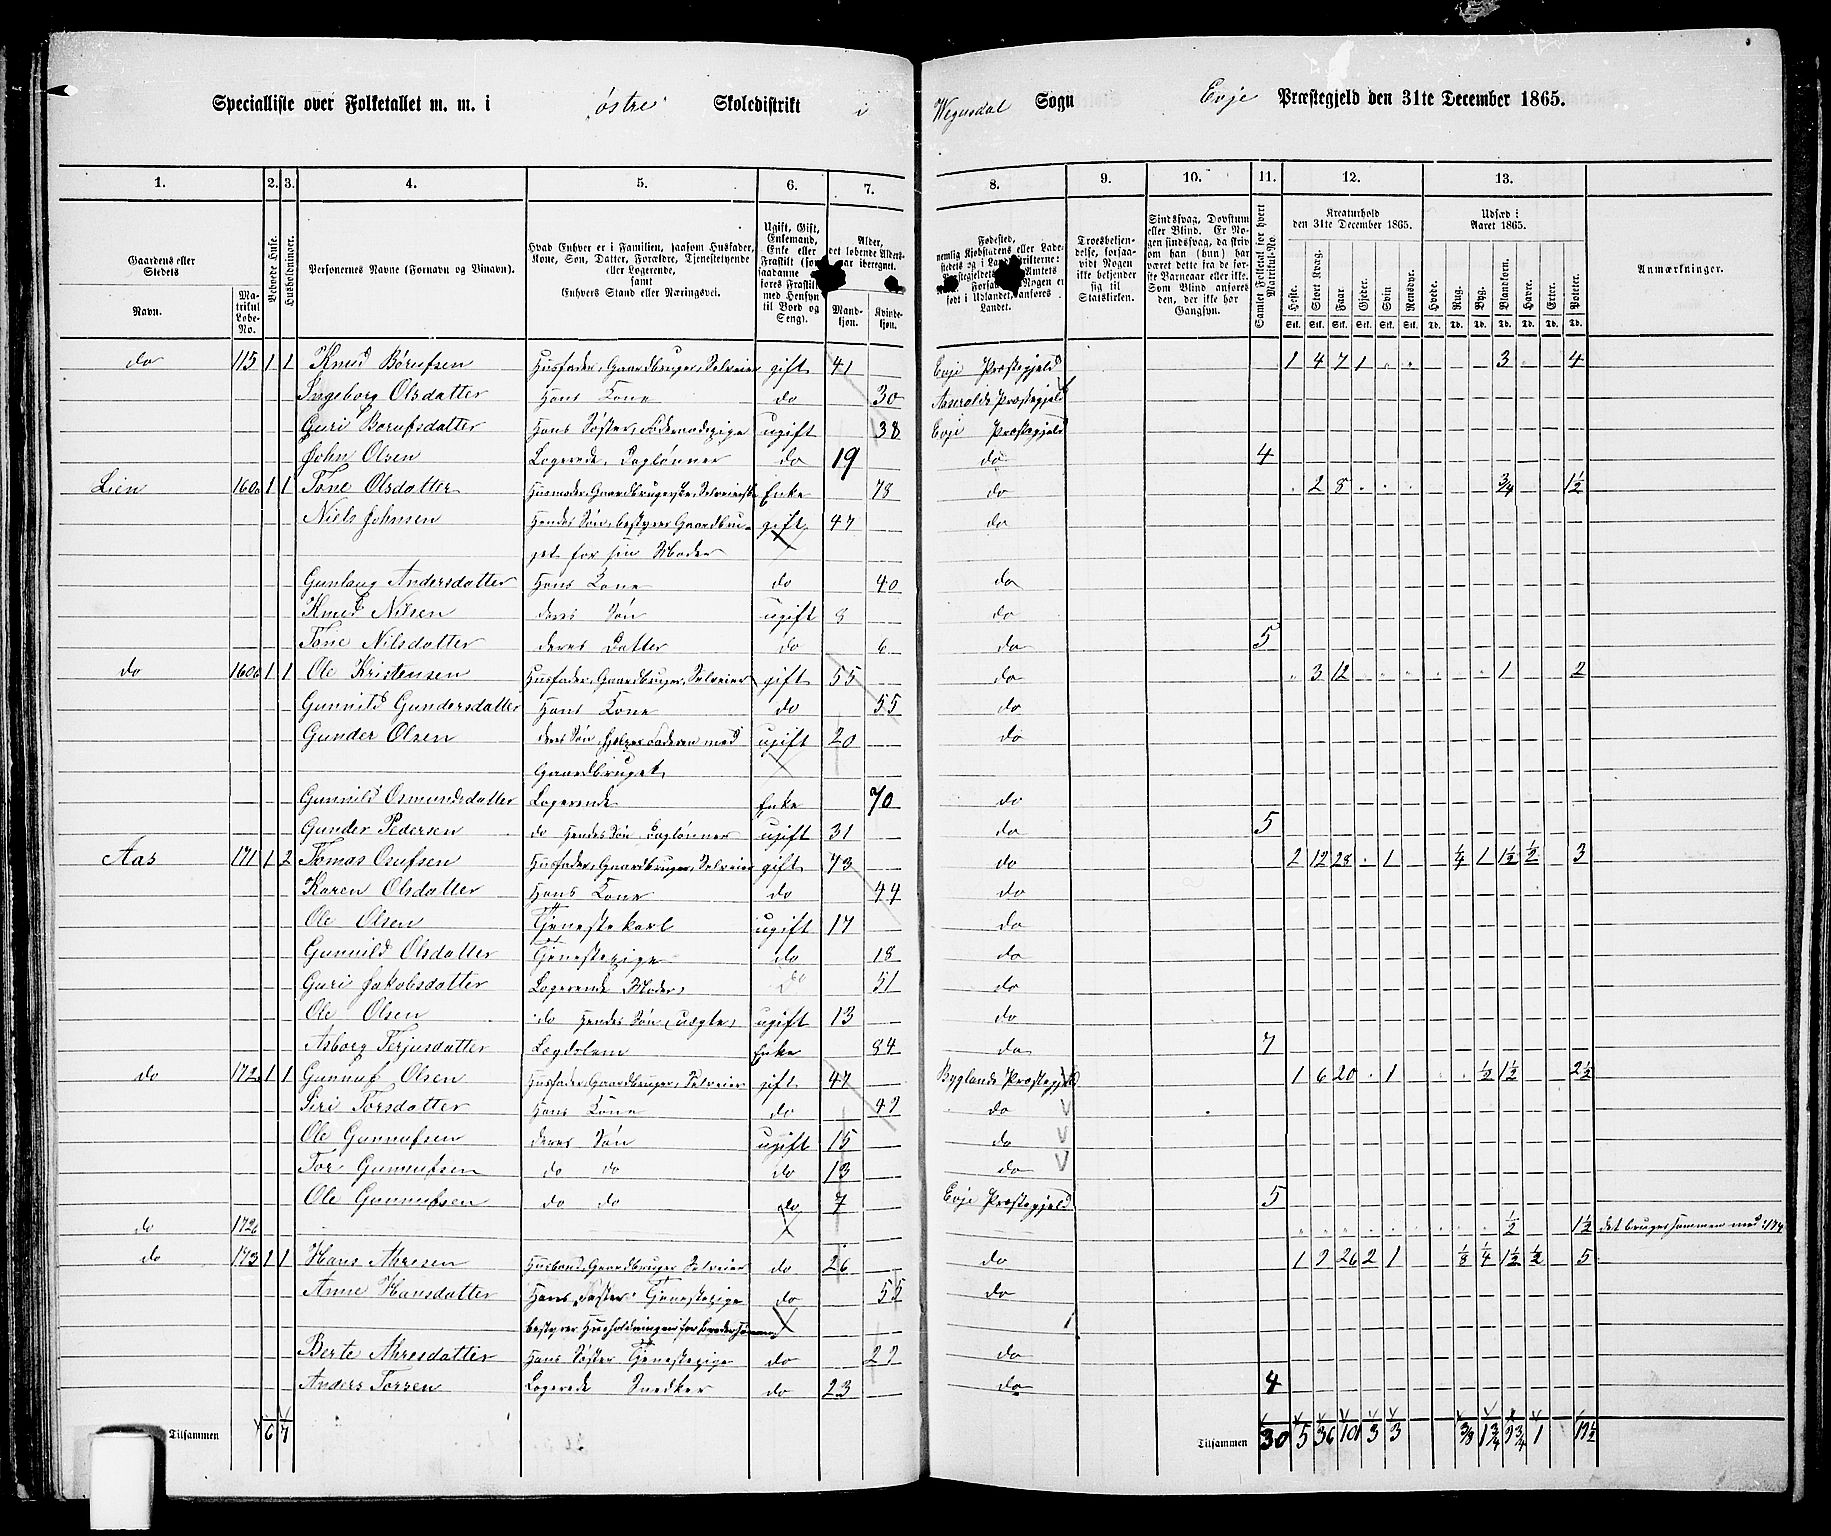 Specialliste over Folketallet m. m. i østre Skoledistrikt i Wegusdal Sogn Evje Præstegjeld den 31te December 1865.
1. 2. 3. 4. 5. 6. 7. 8. 9. 10. 11. 12. 13.
Gaardens eller Stedets
Navn. Matrikul Løbe-No.
Beboede Huse.
Husholdninger.
Personernes Navne (Fornavn og Tilnavn).
Hvad Enhver er i Familien, saasom Husfader, Kone, Søn, Datter, Forældre, Tjenestetyende eller Logerende, samt Enhvers Stand eller Næringsvei.
Ugift, Gift, Enkemand, Enke eller Fraskilt
Alder, det løbende Aldersaar iberegnet.
Mandkjøn. Kvindekjøn.
Fødested,
Troesbekjendelse, forsaavidt Nogen ikke bekjender sig til Statskirken.
Sindssvag, Døvstum eller Blind. Er Nogen sindssvag, da skriv om han (hun) har været dette fra de første Barneaar eller ikke. Som Blind anføres den, der ikke har Gangsyn.
Samlet Folketal for hvert Matrikul-No.
Kreaturhold den 31te December 1865.
Heste. Stort Kvæg. Faar. Gjeder. Svin. Rensdyr.
Udsæd i Aaret 1865.
Hvede. Rug. Byg. Blandkorn. Havre. Erter. Poteter.
Anmærkninger.
do 115 1 1 Knud Børufsen Husfader, Gaardbruger, Selveier gift 41 Evje Præstegjeld 1 4 7 1 3 4
Ingeborg Olsdatter Hans Kone do 30 Præstegjeld
Guri Borufsdatter Hans Søster, ugift 38 Evje Præstegjeld
John Olsen Logerede, Daglønner do 19 do 4
Lien 160a 1 1 Tone Olsdatter Husmoder, Gaardbrugerske, Selveierske Enke 78 do 2 8 3/4 1 1/2
Niels Johnsen Hendes Søn, bestyrer Gaardbru- gift 47 do
get for sin Moder
Gunlaug Andersdatter Hans Kone do 40 do
Knud Nilsen deres Søn ugift 8 do
Tone Nilsdatter deres Datter do 6 do 5
do 160b 1 1 Ole Kristensen Husfader, Gaardbruger, Selveier gift 55 do 3 12 1 2
Gunvild Gundersdatter Hans Kone do 55 do
Gunder Olsen deres Søn, hjelper Faderen med ugift 20 do
Gaardbruget
Gunvild Osmundsdatter Logerende Enke 70 do
Gunder Pedersen do Hendes Søn Daglønner ugift 31 do 5
Aas 171 1 2 Tomas Osufsen Husfader, Gaardbruger, Selveier gift 73 do 2 12 28 1 1/4 1 1 1/2 1/2 3
Karen Olsdatter Hans Kone do 44 do
Ole Olsen Tjenestekarl ugift 17 do
Gunvild Olsdatter Tjenestepige do 18 do
Guri Jakobsdatter Logerende Moder do 51 do
Ole Olsen do Hendes Søn (uægte) ugift 13 do
Asborg Terjusdatter Lægdslem Enke 84 do 7
do 172a 1 1 Gunnuf Olsen Husfader, Gaardbruger, Selveier gift 47 Byglands Præstegjeld 1 6 20 1 1/2 1 1/2 2 1/2
Siri Torsdatter Hans Kone do 47 do
Ole Gunnufsen deres Søn ugift 15 do
Tor Gunnufsen do do do 13 do
Ole Gunnufsen do do do 7 Evje Præstegjeld 5
do 172b 1/2 1 1/2 det bruges sammen med
do 173 1 1 Hans Aresen Husbond, Gaardbruger Selveier do 26 do 1 9 26 2 1 1/8 1/4 1 1/2 1/2 5
Anne Hansdatter Hans Faster Tjenestepige do 55 do
bestyrer Husholdningen for Brodersønnen
Berte Aresdatter Hans Søster Tjenestepige do 27 do
Anders Torsen Logerede Snedker do 23 do 4
Tilsammen 6 7 Tilsammen 30 5 36 101 3 3 3/8 1 3/4 9 3/4 1 19 1/2